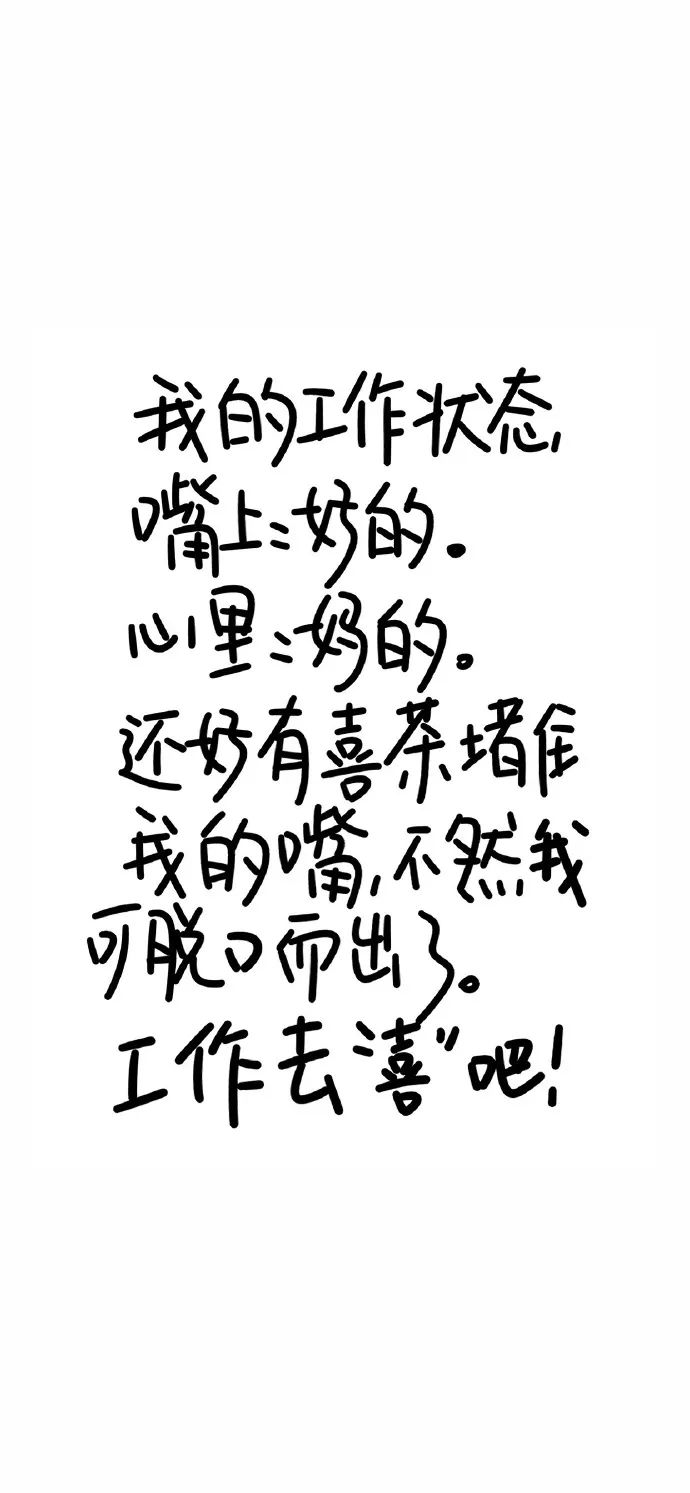 我的工作状态,
嘴上:好的.
心里:妈的。
还好有喜茶堵住
我的嘴,不然我
可脱口而出了。
工作去“喜”吧!